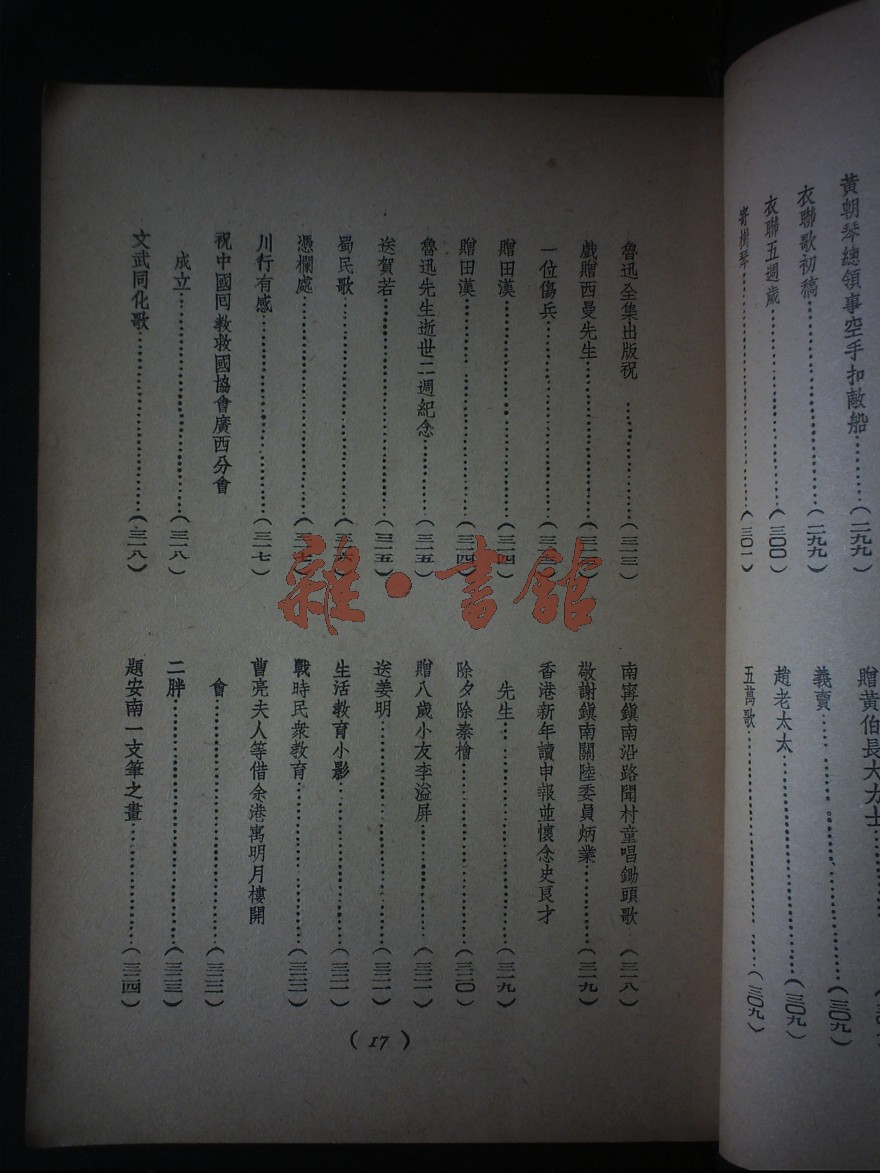 黃朝琴總領事空手扣敵船………(二九九)
衣聯歌初稿………(二九九)
衣聯五週歲………(三〇〇)
寄樹琴………(三〇一)
贈黃伯長大力士………
義賣………(三〇九)
趙老太太………(三〇九)
五萬歌………(三〇九)
魯迅全集出版祝………(三一三)
戲贈西曼先生………
一位傷兵………
贈田漢………(三一四)
贈田漢………(三一四)
魯迅先生逝世二週紀念………(三一五)
送賀若………(三一五)
蜀民歌………
憑欄處………
川行有感………(三一七)
祝中國回教救國協會廣西分會
成立………(三一八)
文武同化歌………(三一八)
南寧鎮南沿路聞村童唱鋤頭歌…(三一八)
敬謝鎮南關陸委員炳業………(三一九)
香港新年讀申報並懷念史良才
先生………(三一九)
除夕除秦檜………(三二〇)
贈八歲小友李溢屏………(三二一)
送姜明………(三二一)
生活教育小影………(三二一)
戰時民衆教育………(三二二)
曹亮夫人等借余港寓明月樓開
會………(三二二)
二胖………(三二三)
題安南一支筆之畫………(三二四)
(17)
雜·書館